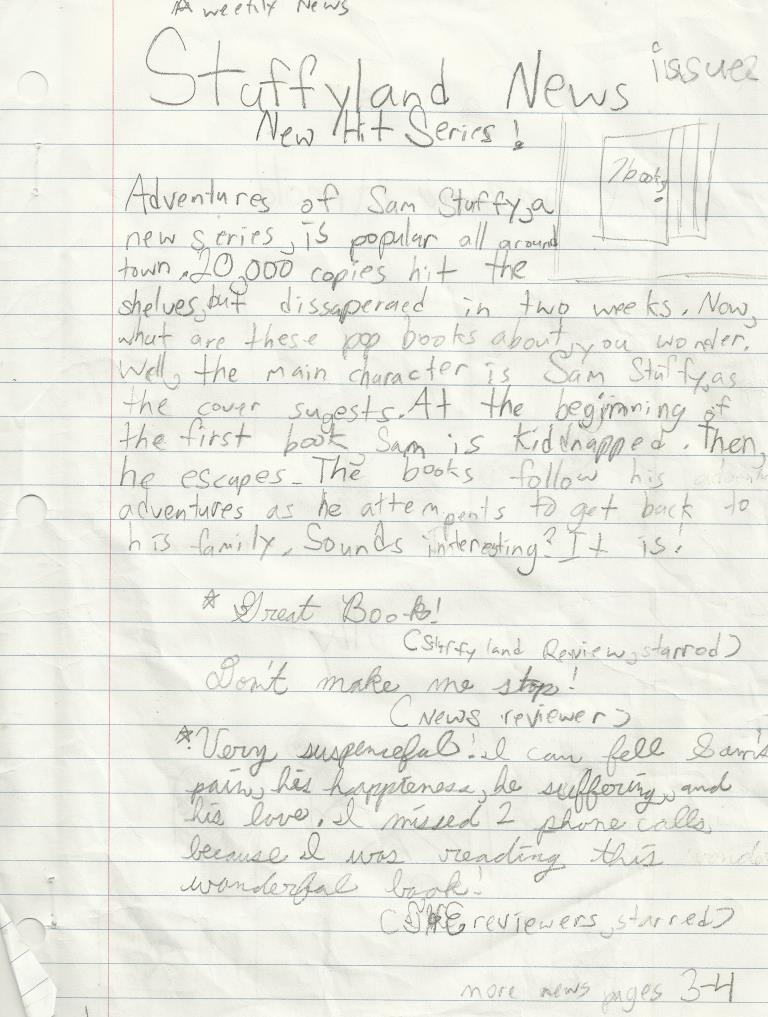 A weekly News
Stuffyland News issue2
New Hit Series!
7 books
Adventures of Sam Stuffy, a
new series, is popular all around
town. 20,000 copies hit the
shelves, but dissaperaed in two weeks. Now,
what are these pop books about, you wonder.
Well, the main character is Sam Stuffy, as
the cover sugests. At the beginning of
the first book, Sam is kiddnapped. Then,
he escapes. The books follow his
adventures as he attempents to get back to
his family. Sounds interesting? It is!
* Great Book!
(Stuffyland Review, starred)
Don't make me stop!
(News reviewer)
* Very suspenseful! I can fell Sam's
pain, his happieness, he suffering, and
his love. I missed 2 phone calls
because I was reading this
wonderful book!
(reviewers, starred)
more news pages 3-4